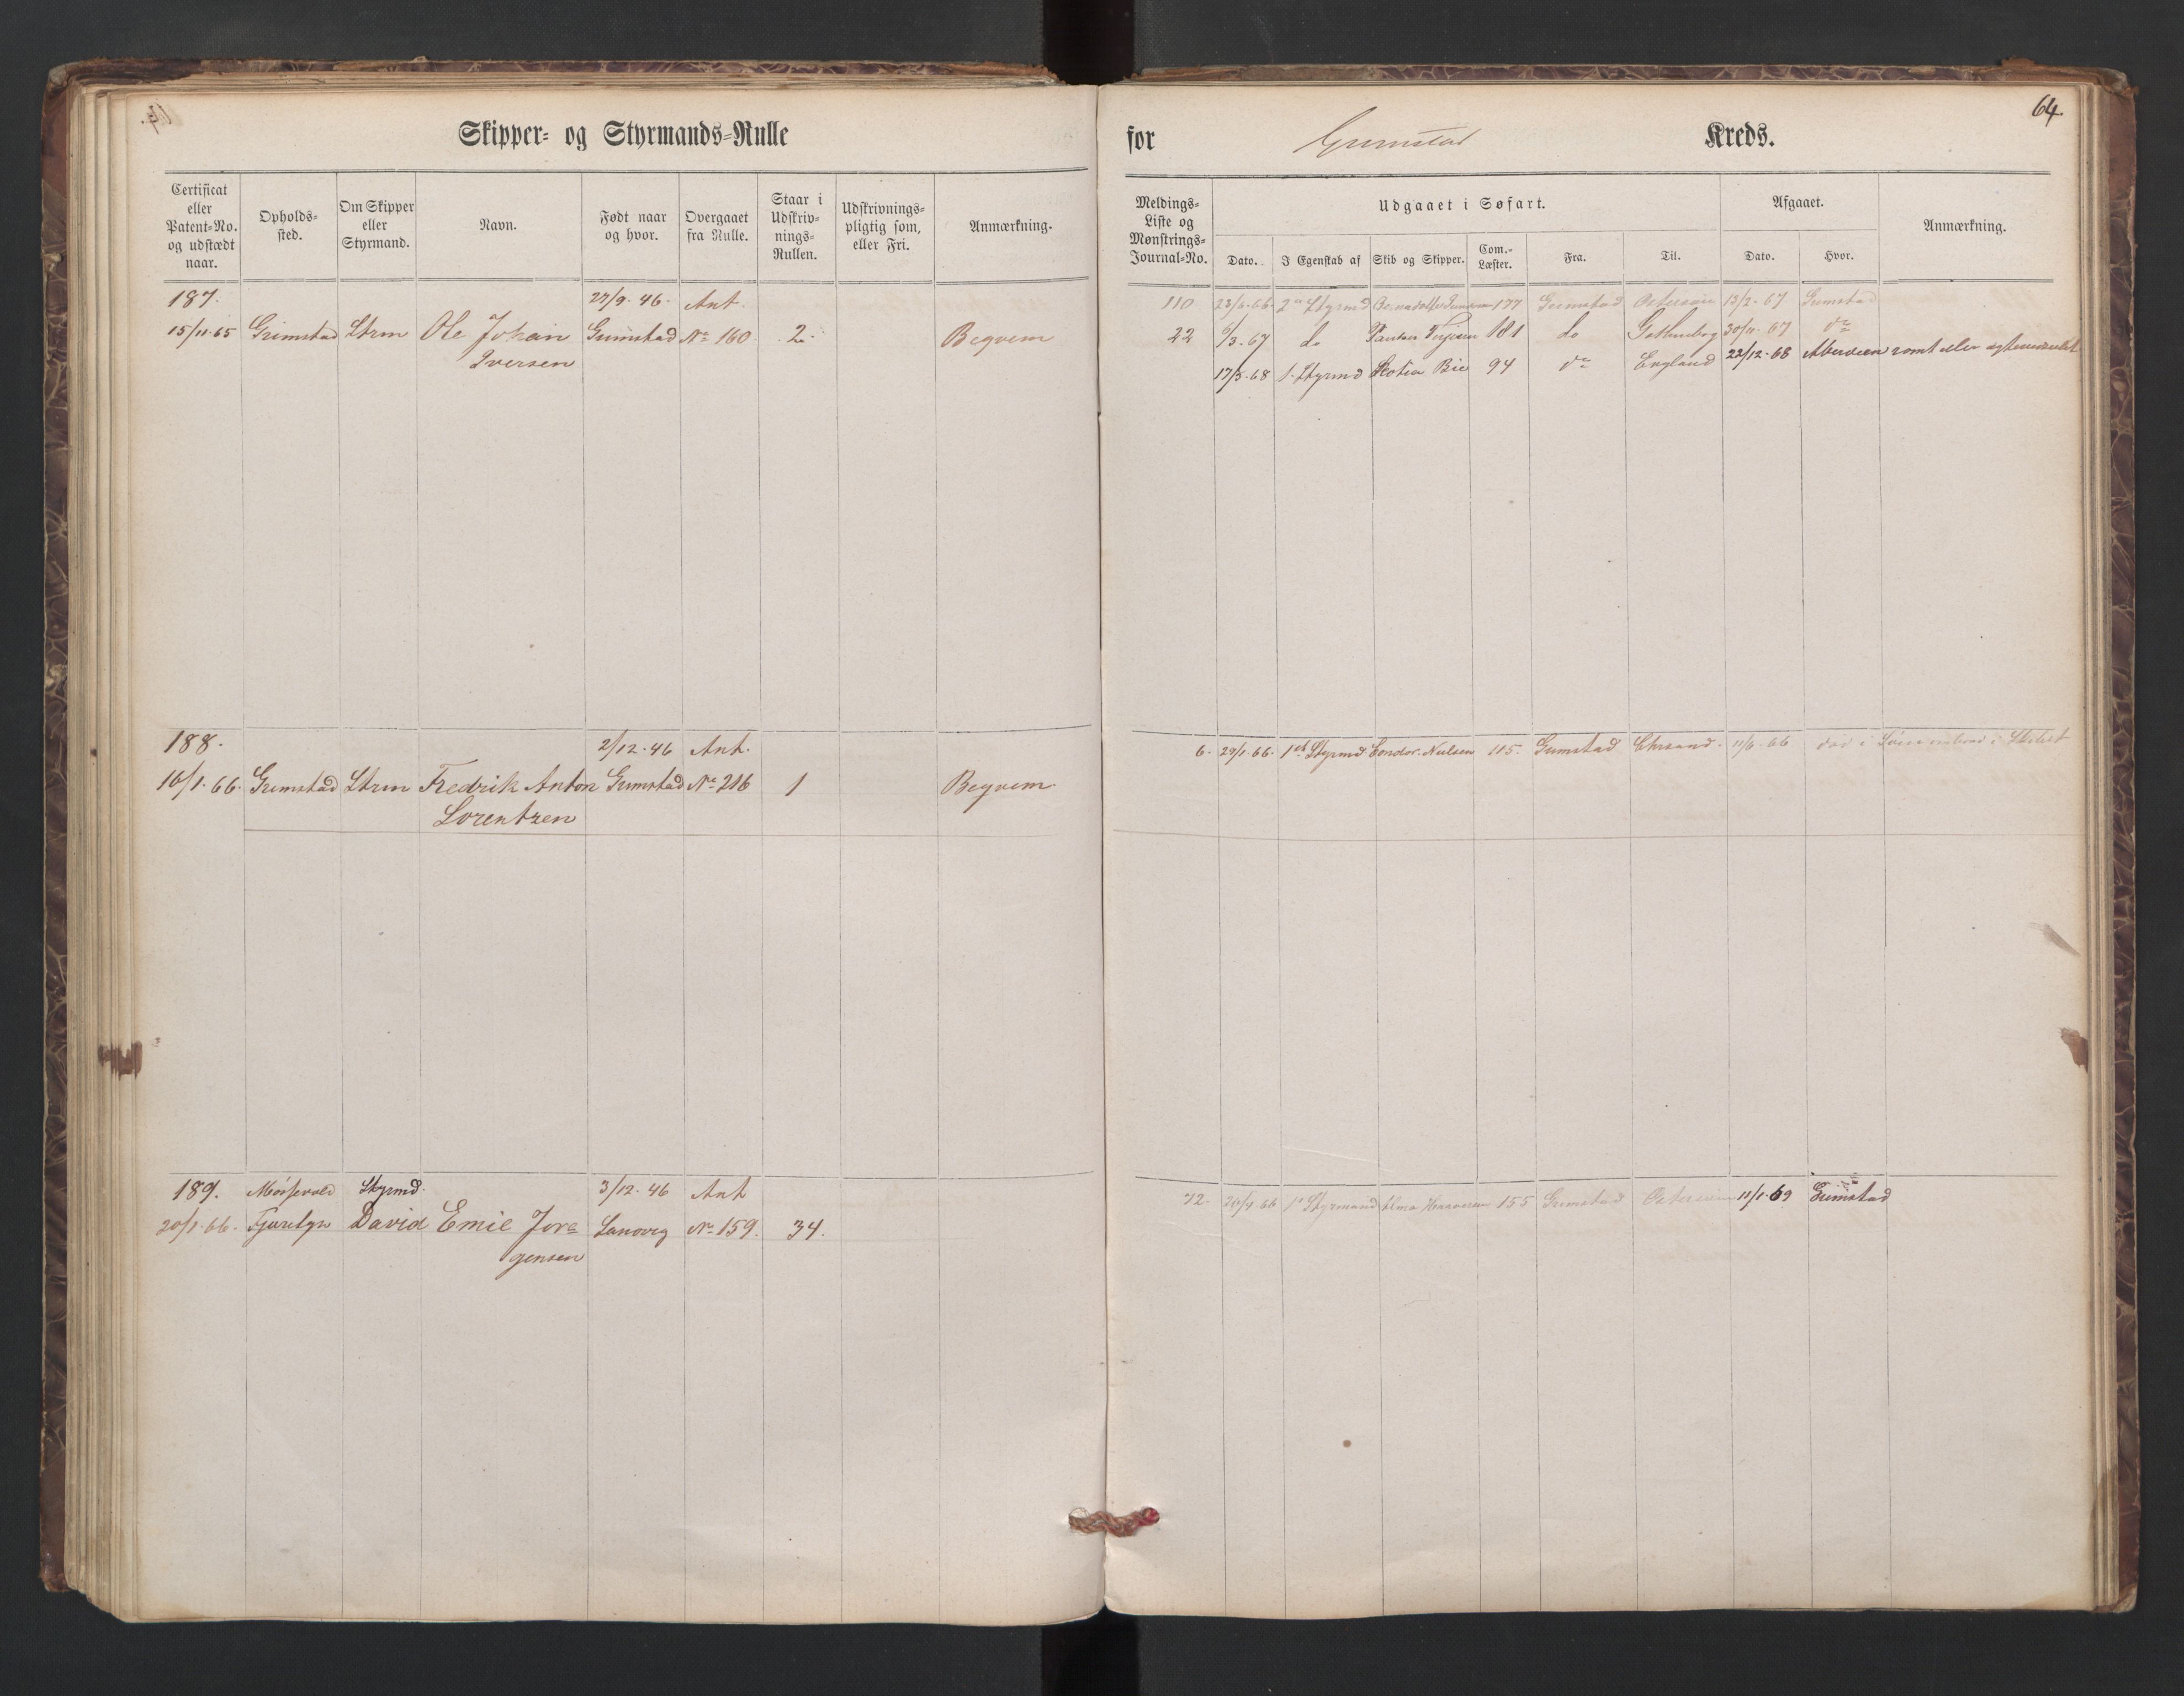 64.
Skipper- og Styrmands-Rulle for Grimstad Kreds.
Certificat eller Patent-No. og udstædt naar.
Opholds-sted.
Om Skipper eller Styrmand.
Navn.
Født naar og hvor.
Overgaaet fra Rulle.
Staar i Udskriv-nings-Rullen.
Udskrivnings-pligtig som, eller Fri.
Anmærkning.
Meldings-Liste og Mønstrings-Journal-No.
Udgaaet i Søfart.
Dato.
I Egenskab af
Skib og Skipper.
Com.-Læster.
Fra.
Til.
Afgaaet.
Dato.
Hvor.
Anmærkning.
187. 27/9. 46. Ant.
15/11. 65 Grimstad Strm Ole Johan Grimstad No 160 2. Beqvem
Iversen
110 23/6. 66 2den Styrmd 177 Grimstad 13/2. 67 Grimstad
22 6/3. 67 do 181 do Gothenborg 30/11. 67 do
17/3. 68 1. Styrmd Scotia Bie 94 do England 22/12. 68 Aberdeen
188. 2/12. 46 Ant.
16/1. 66. Grimstad Strm Fredrik Anton Grimstad No 216 1 Beqvem.
Lorentzen
6. 29/1. 66. 1st Styrmd Condor. Nielsen 115. Grimstad Chrsand. 11/6. 66
189. Strmd. 3/12. 46 Ant
20/1. 66. David Emil Jør- Landvig No 159. 34.
gensen
72. 20/4. 66 1e Styrmand Alma 155 Grimstad 11/1. 69 Grimstad